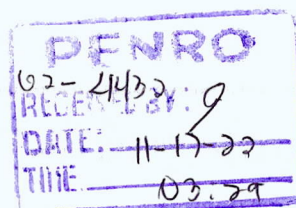 PENRO
02-4432
RECEIVED BY:
DATE: 11-17-22
TIME 03:29